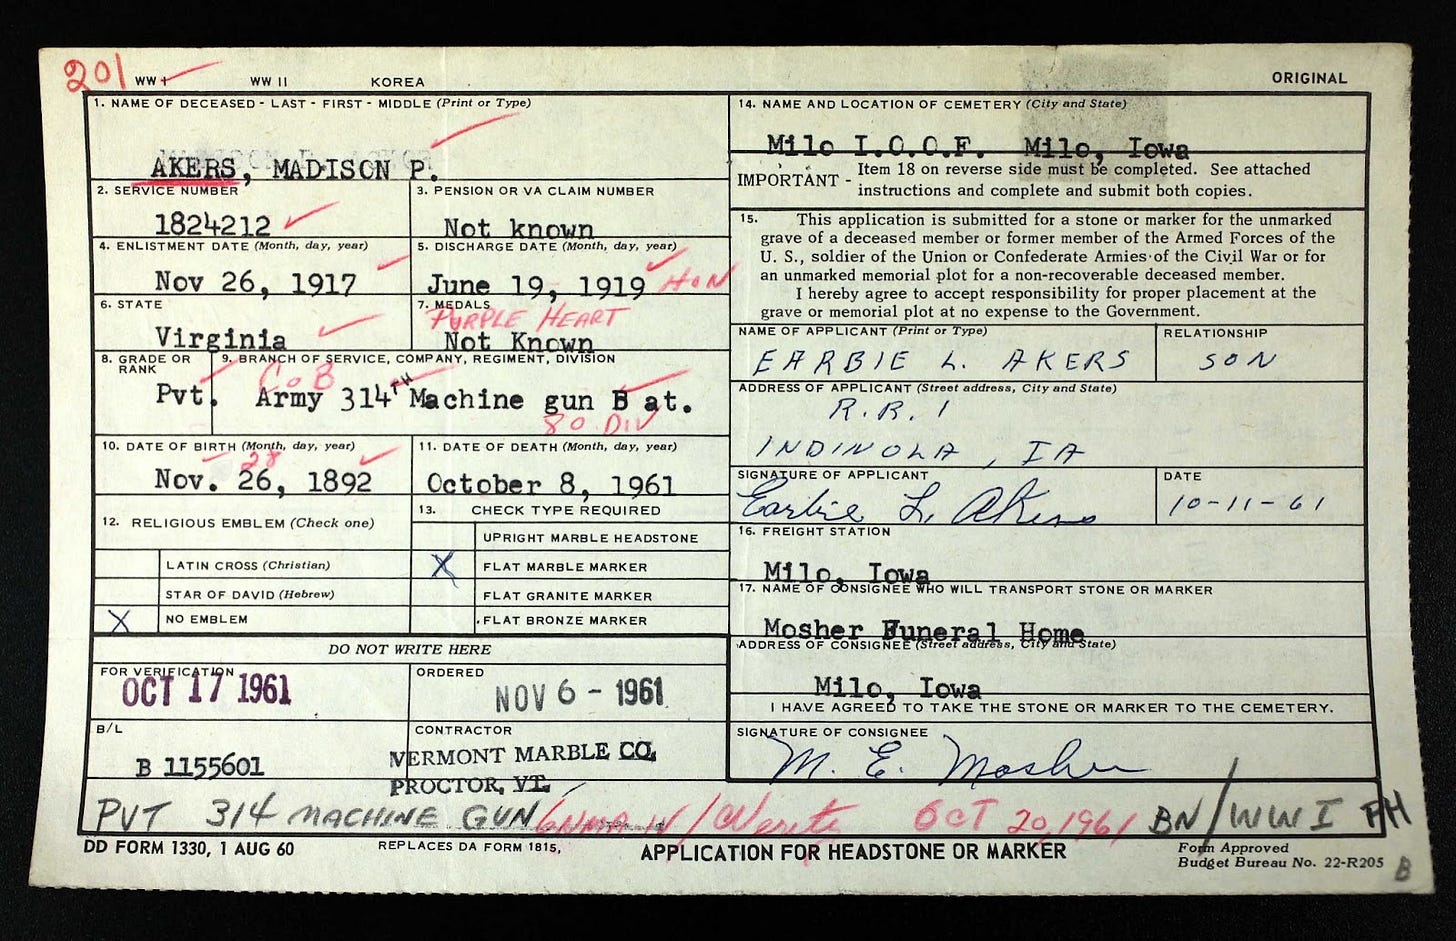 201 WW I WW II KOREA ORIGINAL
1. NAME OF DECEASED - LAST - FIRST - MIDDLE (Print or Type)
AKERS, MADISON P.
2. SERVICE NUMBER
1824212
3. PENSION OR VA CLAIM NUMBER
Not known
4. ENLISTMENT DATE (Month, day, year)
Nov 26, 1917
5. DISCHARGE DATE (Month, day, year)
June 19, 1919 HON
6. STATE
Virginia
7. MEDALS
PURPLE HEART
Not Known
8. GRADE OR
RANK
Pvt.
9. BRANCH OF SERVICE, COMPANY, REGIMENT, DIVISION
Co B
Army 314TH Machine gun B at.
80 DIV
10. DATE OF BIRTH (Month, day, year)
28
Nov. 26, 1892
11. DATE OF DEATH (Month, day, year)
October 8, 1961
12. RELIGIOUS EMBLEM (Check one)
LATIN CROSS (Christian)
STAR OF DAVID (Hebrew)
X NO EMBLEM
13. CHECK TYPE REQUIRED
UPRIGHT MARBLE HEADSTONE
X FLAT MARBLE MARKER
FLAT GRANITE MARKER
FLAT BRONZE MARKER
DO NOT WRITE HERE
FOR VERIFICATION
OCT 17 1961
ORDERED
NOV 6 - 1961
B/L
B 1155601
CONTRACTOR
VERMONT MARBLE CO.
PROCTOR, VT.
14. NAME AND LOCATION OF CEMETERY (City and State)
Milo I.O.O.F. Milo, Iowa
IMPORTANT - Item 18 on reverse side must be completed. See attached
instructions and complete and submit both copies.
15. This application is submitted for a stone or marker for the unmarked
grave of a deceased member or former member of the Armed Forces of the
U. S., soldier of the Union or Confederate Armies of the Civil War or for
an unmarked memorial plot for a non-recoverable deceased member.
I hereby agree to accept responsibility for proper placement at the
grave or memorial plot at no expense to the Government.
NAME OF APPLICANT (Print or Type)
EARBIE L. AKERS
RELATIONSHIP
SON
ADDRESS OF APPLICANT (Street address, City and State)
R.R. 1
INDINOLA, IA
SIGNATURE OF APPLICANT
Earbie L. Akers
DATE
10-11-61
16. FREIGHT STATION
Milo, Iowa
17. NAME OF CONSIGNEE WHO WILL TRANSPORT STONE OR MARKER
Mosher Funeral Home
ADDRESS OF CONSIGNEE (Street address, City and State)
Milo, Iowa
I HAVE AGREED TO TAKE THE STONE OR MARKER TO THE CEMETERY.
SIGNATURE OF CONSIGNEE
M. E. Mosher
PVT 314 MACHINE GUN OCT 20, 1961 BN/WW I PH
DD FORM 1330, 1 AUG 60 REPLACES DA FORM 1815, APPLICATION FOR HEADSTONE OR MARKER
Form Approved
Budget Bureau No. 22-R205 B